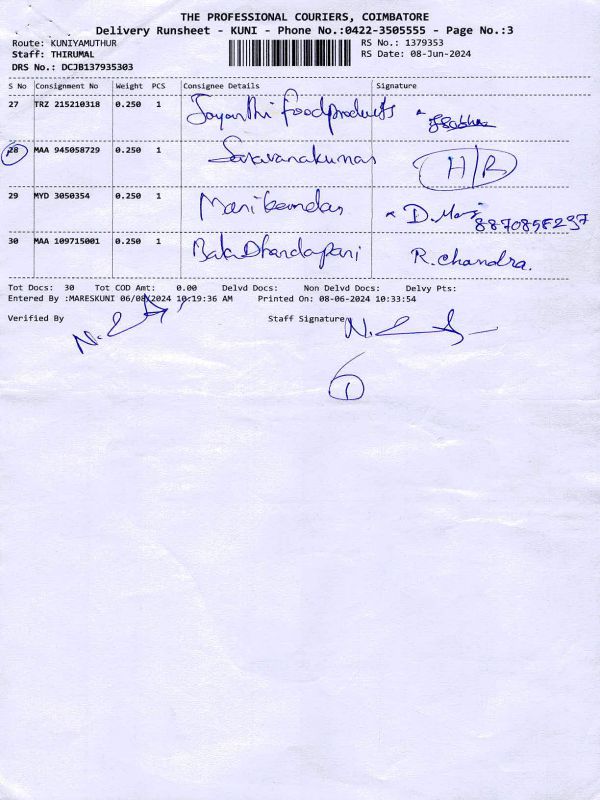 THE PROFESSIONAL COURIERS, COIMBATORE
Delivery Runsheet - KUNI - Phone No.:0422-3505555 - Page No.:3
Route: KUNIYAMUTHUR RS No.: 1379353
Staff: THIRUMAL RS Date: 08-Jun-2024
DRS No.: DCJB137935303
S No Consignment No Weight PCS Consignee Details Signature
27 TRZ 215210318 0.250 1 Jayanthi foodproducts
28 MAA 945058729 0.250 1 Saravanakumar H/R
29 MYD 3050354 0.250 1 Manikandan D. Mani
8870858237
30 MAA 109715001 0.250 1 Bala Dhandapani R. Chandra.
Tot Docs: 30 Tot COD Amt: 0.00 Delvd Docs: Non Delvd Docs: Delvy Pts:
Entered By :MARESKUNI 06/08/2024 10:19:36 AM Printed On: 08-06-2024 10:33:54
Verified By Staff Signature
1